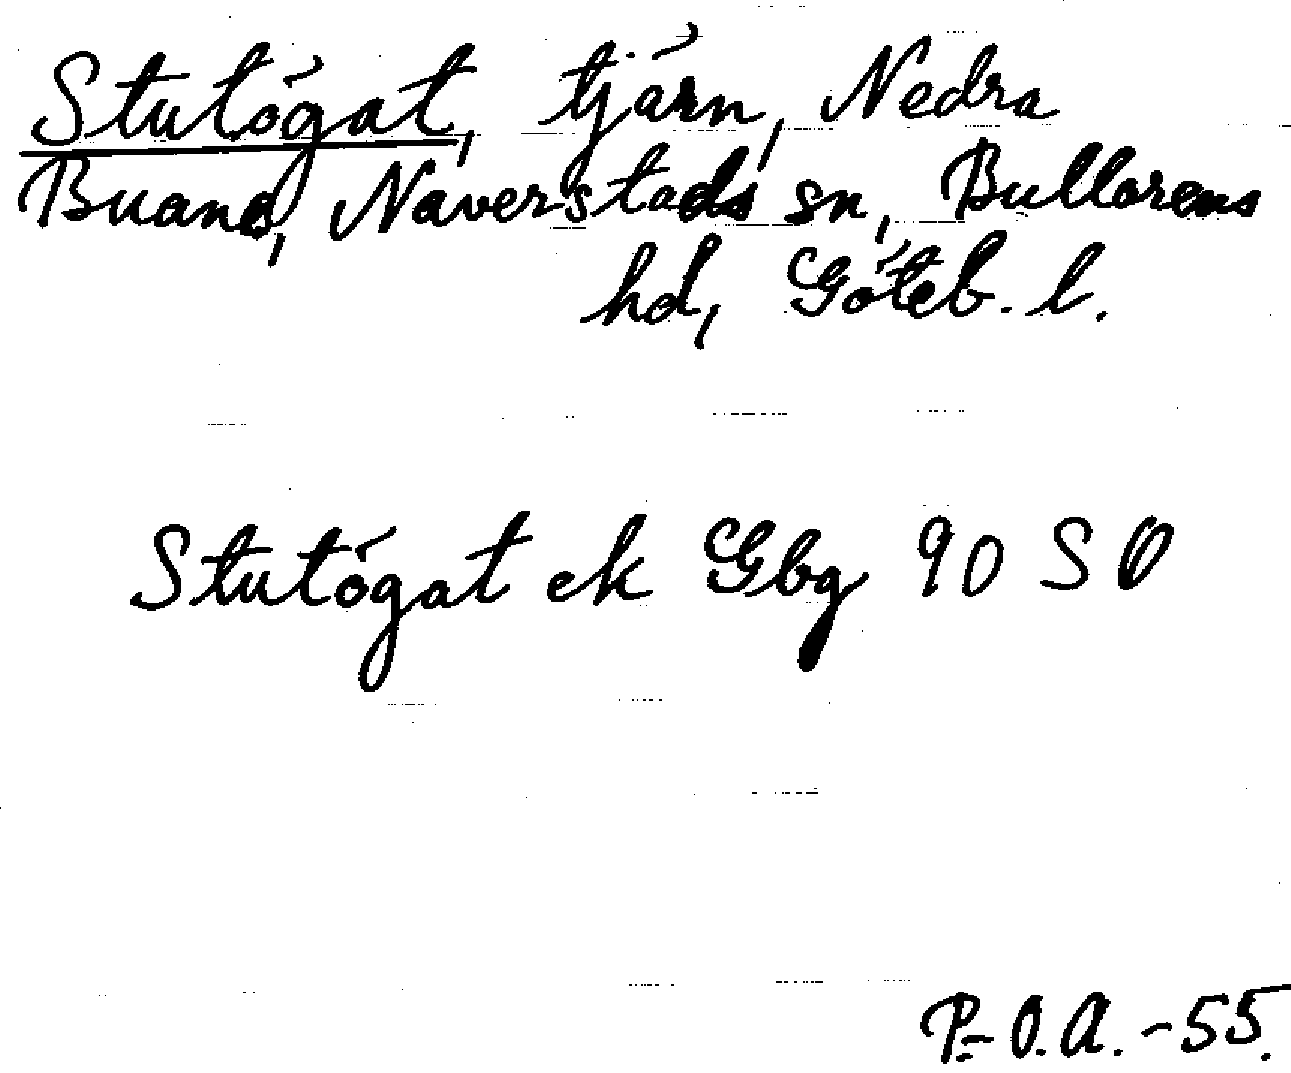 Stutögat, tjärn, Nedra
Buane, Naverstads sn, Bullarens
hd, Göteb. l.
Stutögat ek Gbg 90 SO
P-O.A. -55.